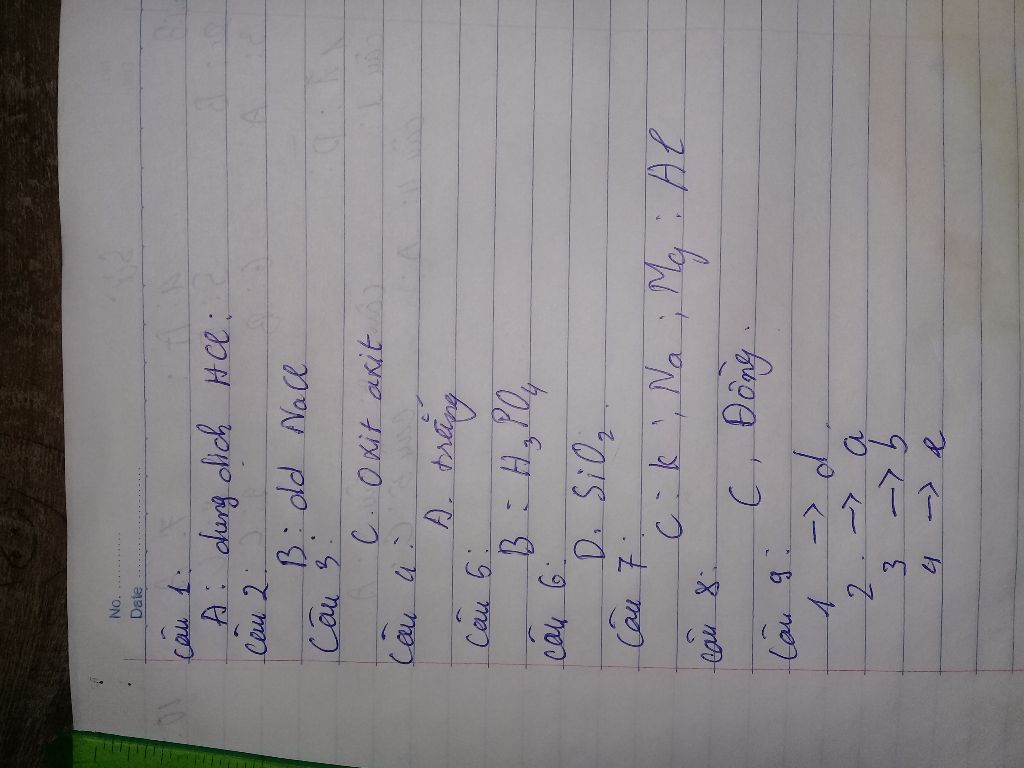 No. ............
Date ........................
Câu 1:
A: dung dịch HCl:
Câu 2:
B: dd NaCl
Câu 3:
C. Oxit axit
Câu 4:
A. trắng
Câu 6:
B: H₃PO₄
Câu 6:
D. SiO₂.
Câu 7:
C: K; Na; Mg; Al
Câu 8:
C, Đồng.
Câu 9:
1 -> d
2. -> a
3 -> b
4 -> e